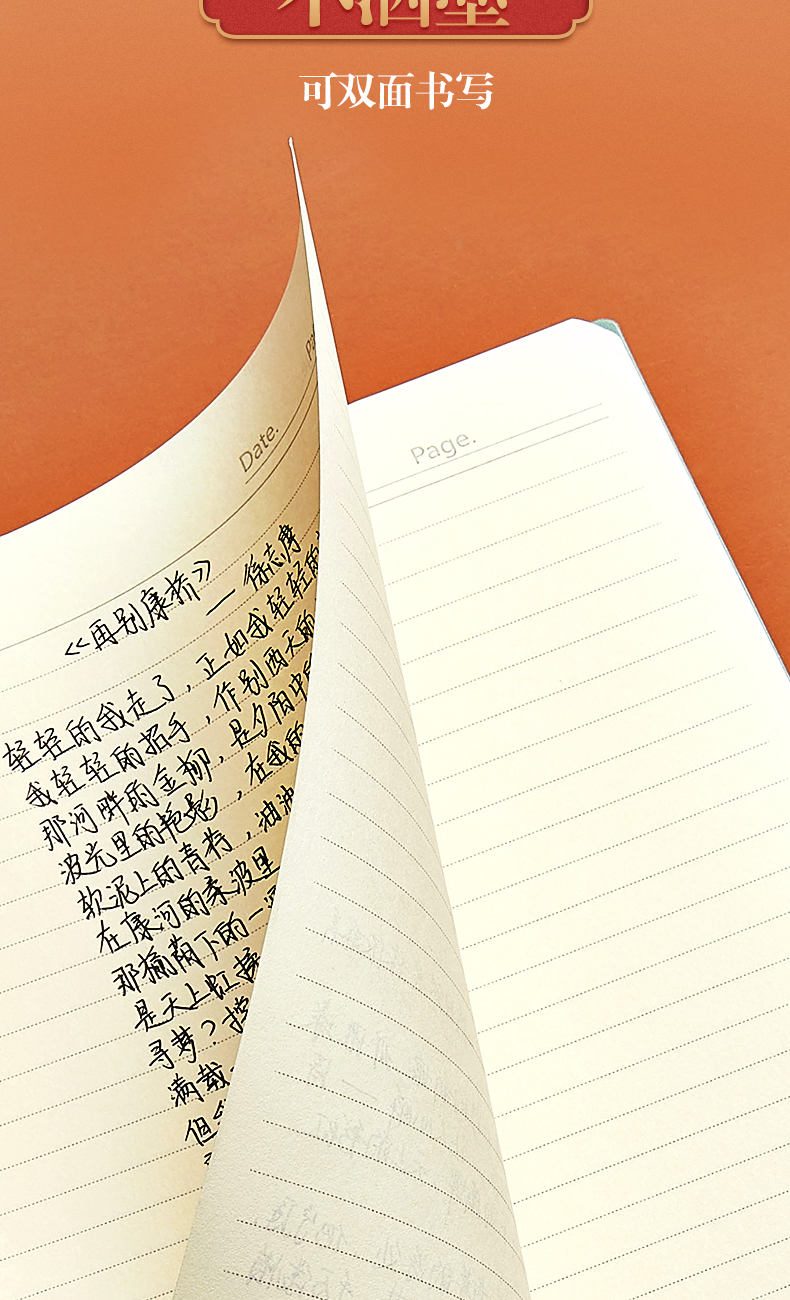 不洇墨
可双面书写
Date.
Page.
《再别康桥》
— 徐志摩
轻轻的我走了,正如我轻轻的
我轻轻的招手,作别西天的
那河畔的金柳,是夕阳中
波光里的艳影,在我的
软泥上的青荇,油油
在康河的柔波里
那榆荫下的一
是天上虹
寻梦?撑
满载
但